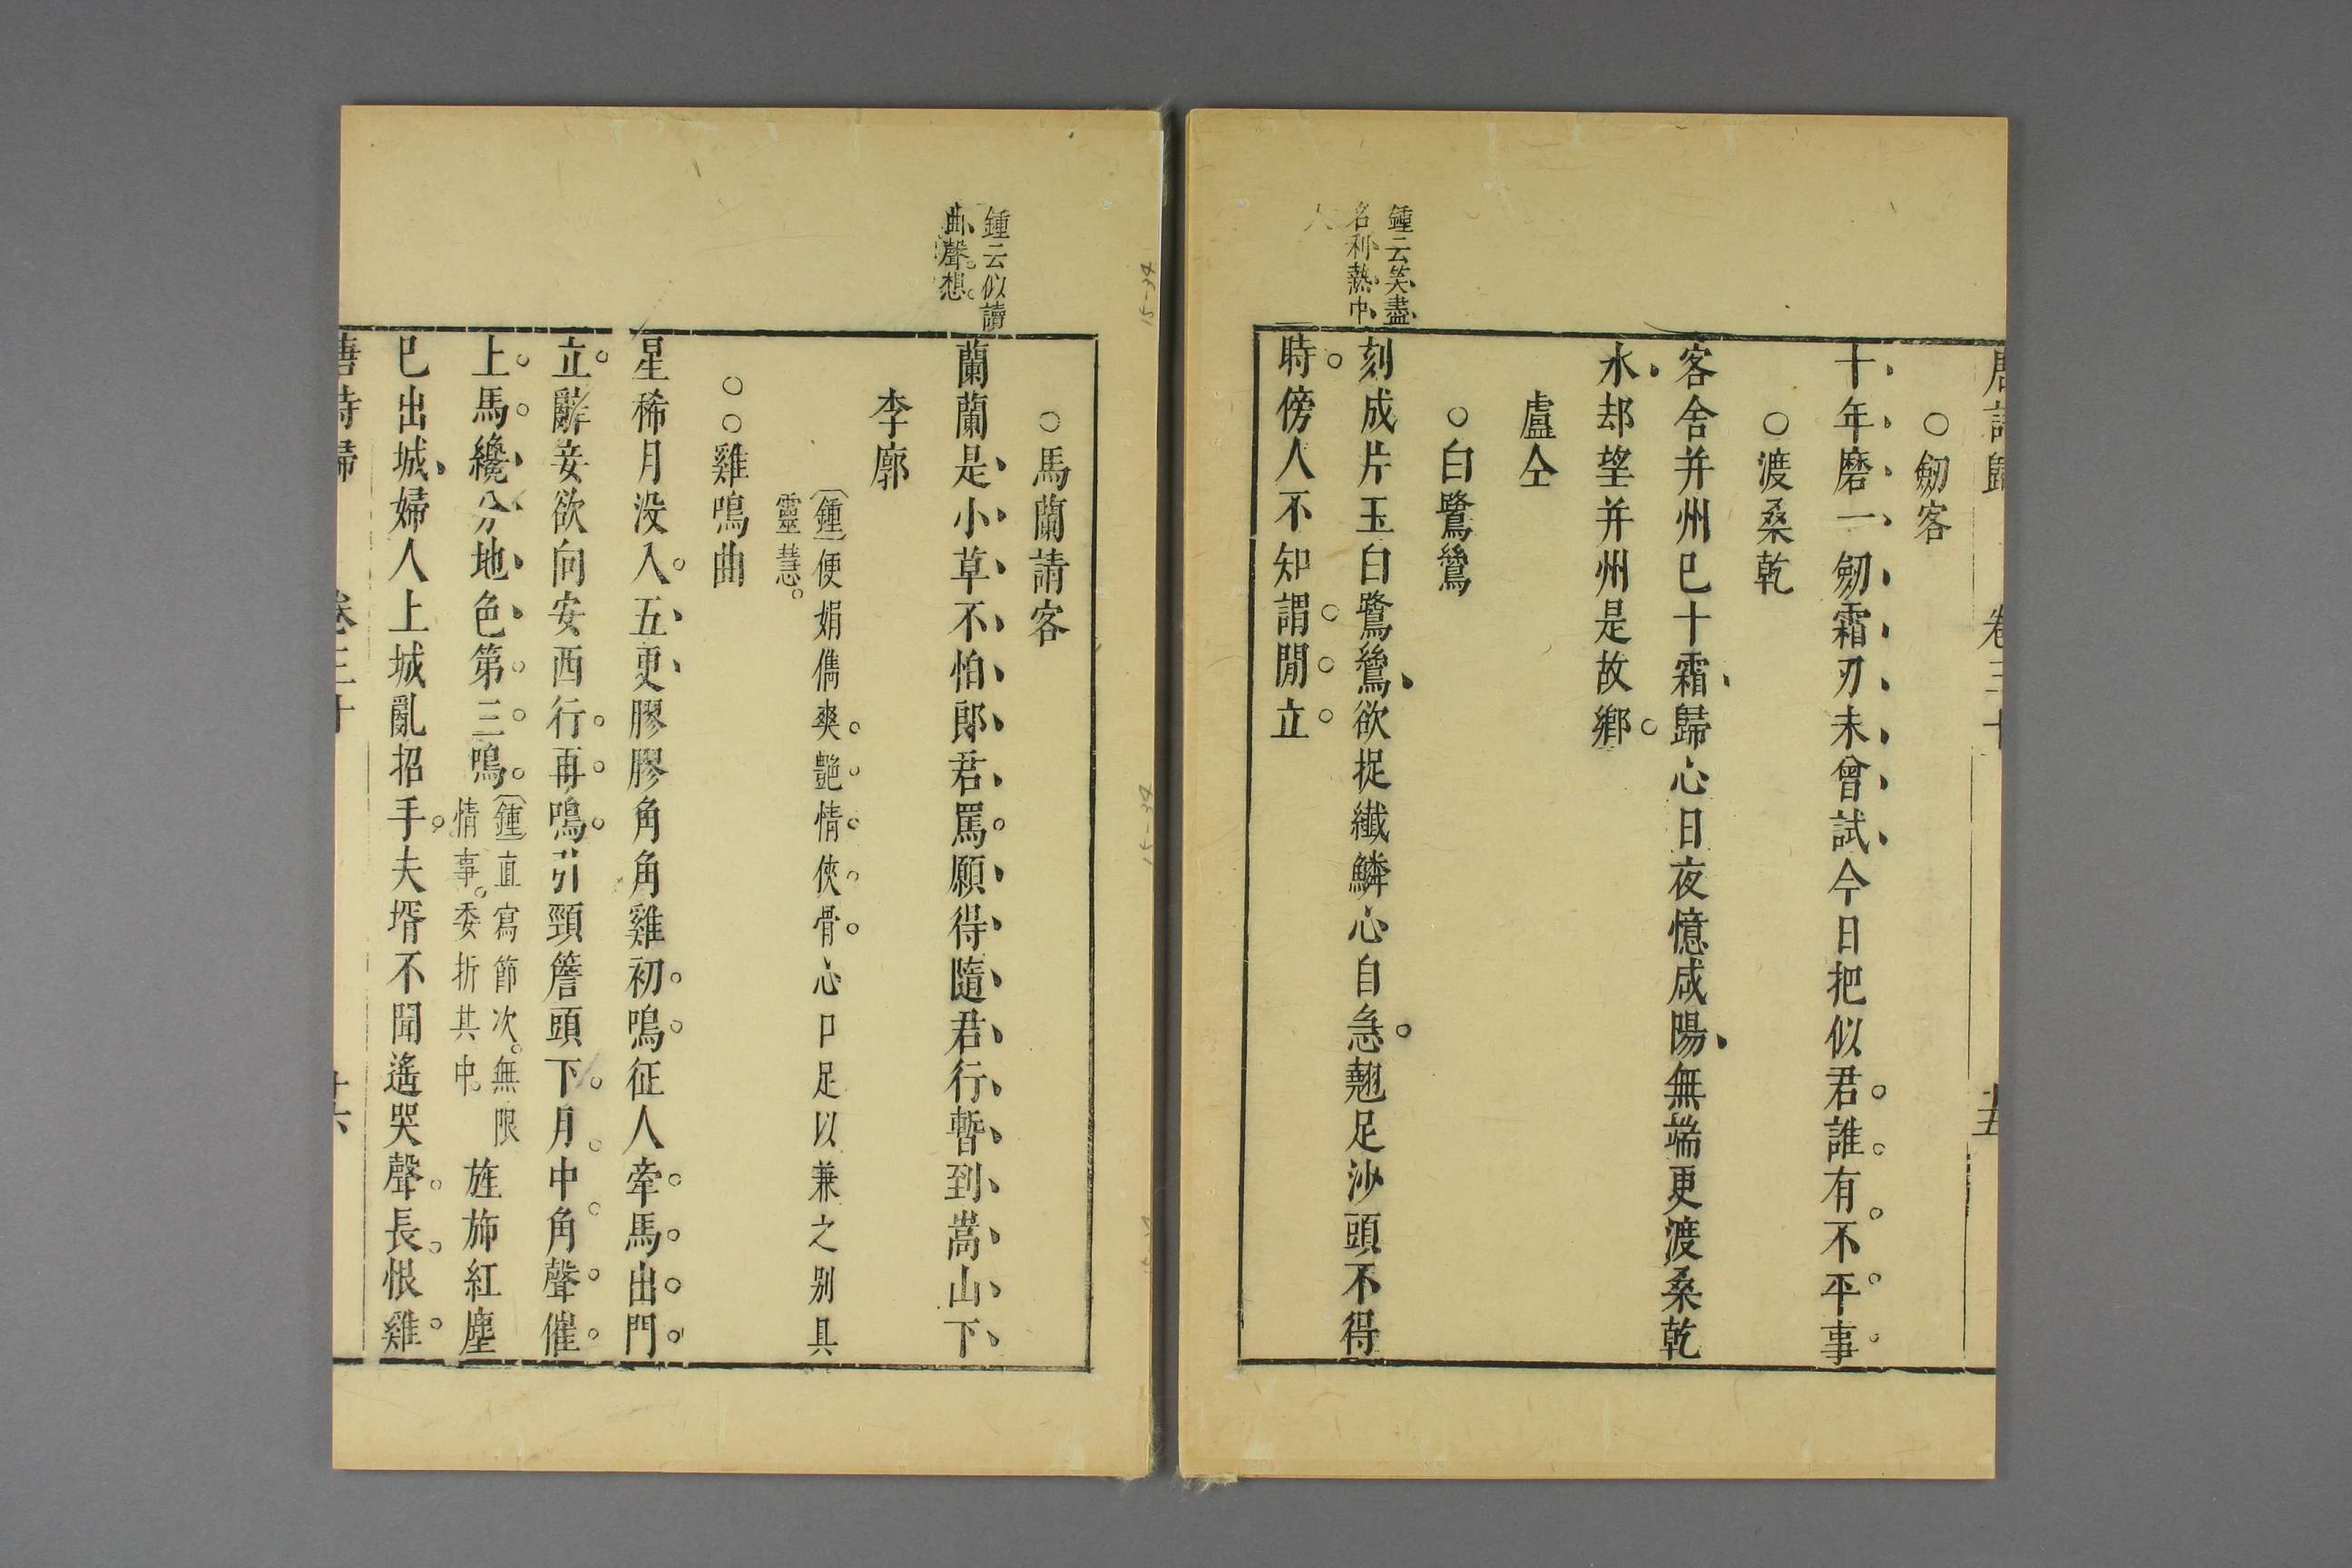 唐詩歸 卷三十 十五
○劒客
十年磨一劒霜刃未曾試今日把似君誰有不平事
○渡桑乾
客舍并州已十霜歸心日夜憶咸陽無端更渡桑乾
水却望并州是故鄉
盧仝
○白鷺鷥
鍾云笑盡
名利熱中
人
刻成片玉白鷺鷥欲捉纖鱗心自急翹足沙頭不得
時傍人不知謂閒立
○馬蘭請客
鍾云似讀
曲聲想
蘭蘭是小草不怕郎君罵願得隨君行暫到嵩山下
李廓
鍾便娟儁爽艷情俠骨心口足以兼之别具
靈慧
○○雞鳴曲
星稀月没入五更膠膠角角雞初鳴征人牽馬出門
立辭妾欲向安西行再鳴引頸簷頭下月中角聲催
上馬纔分地色第三鳴鍾直寫節次無限情事委折其中旌斾紅塵
已出城婦人上城亂招手夫壻不聞遙哭聲長恨雞
唐詩歸 卷三十 十六